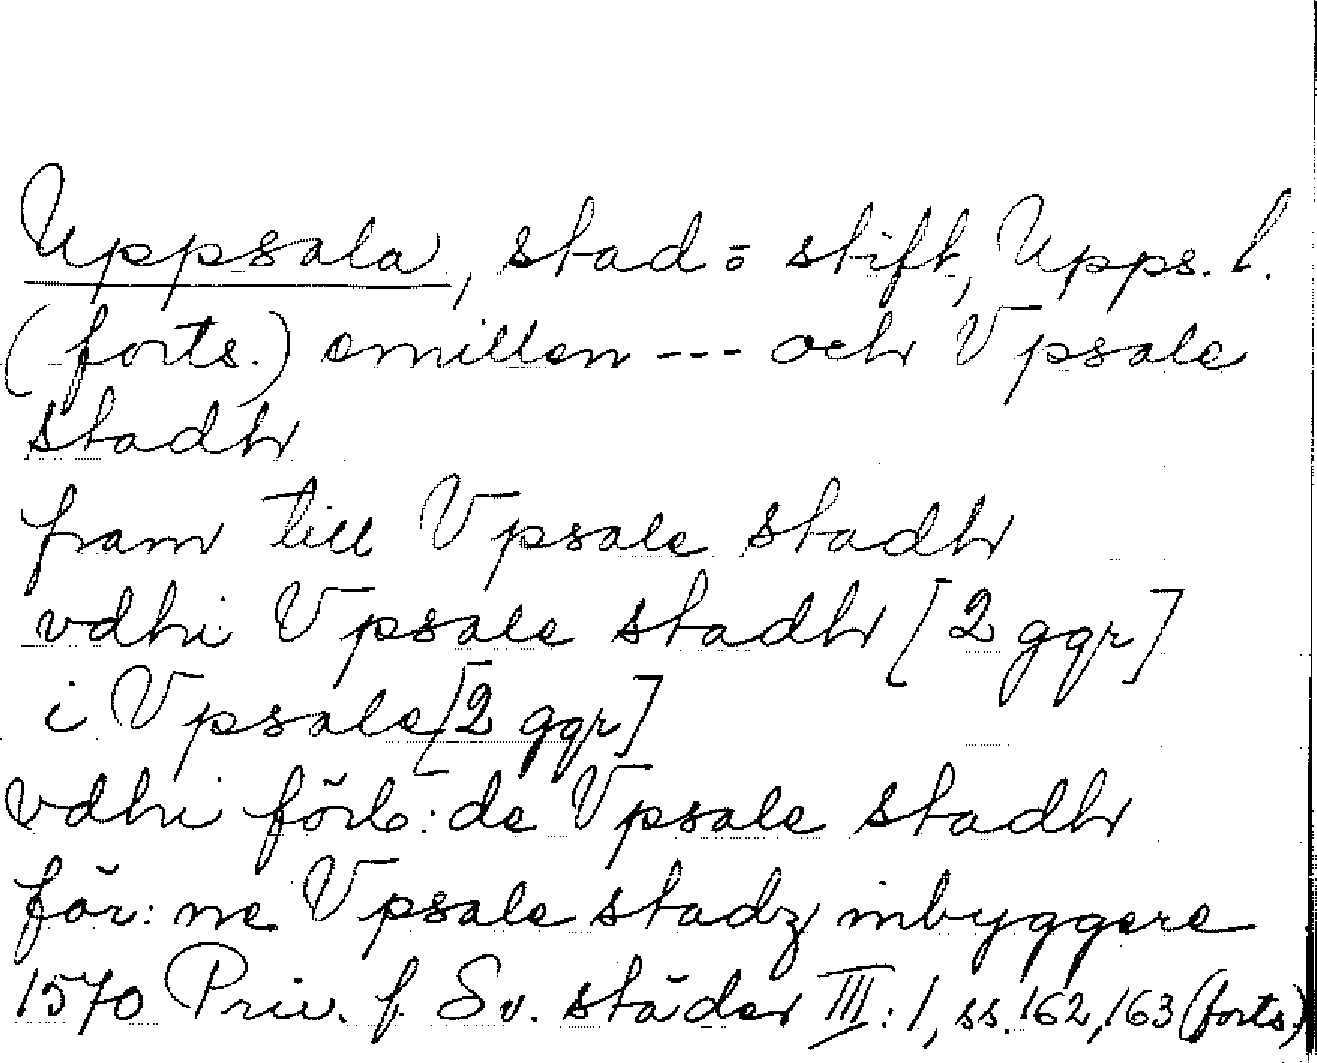 Uppsala, stad o stift, Upps. l.
(forts.) emillen --- och Vpsale
stadh
fram till Vpsale stadh
vdhi Vpsale stadh [2 ggr]
i Vpsale [2 ggr]
vdhi förb:de Vpsale stadh
för:ne Vpsale stadz inbyggere
1570 Priv. f. Sv. städer III:1, ss. 162, 163 (forts.)